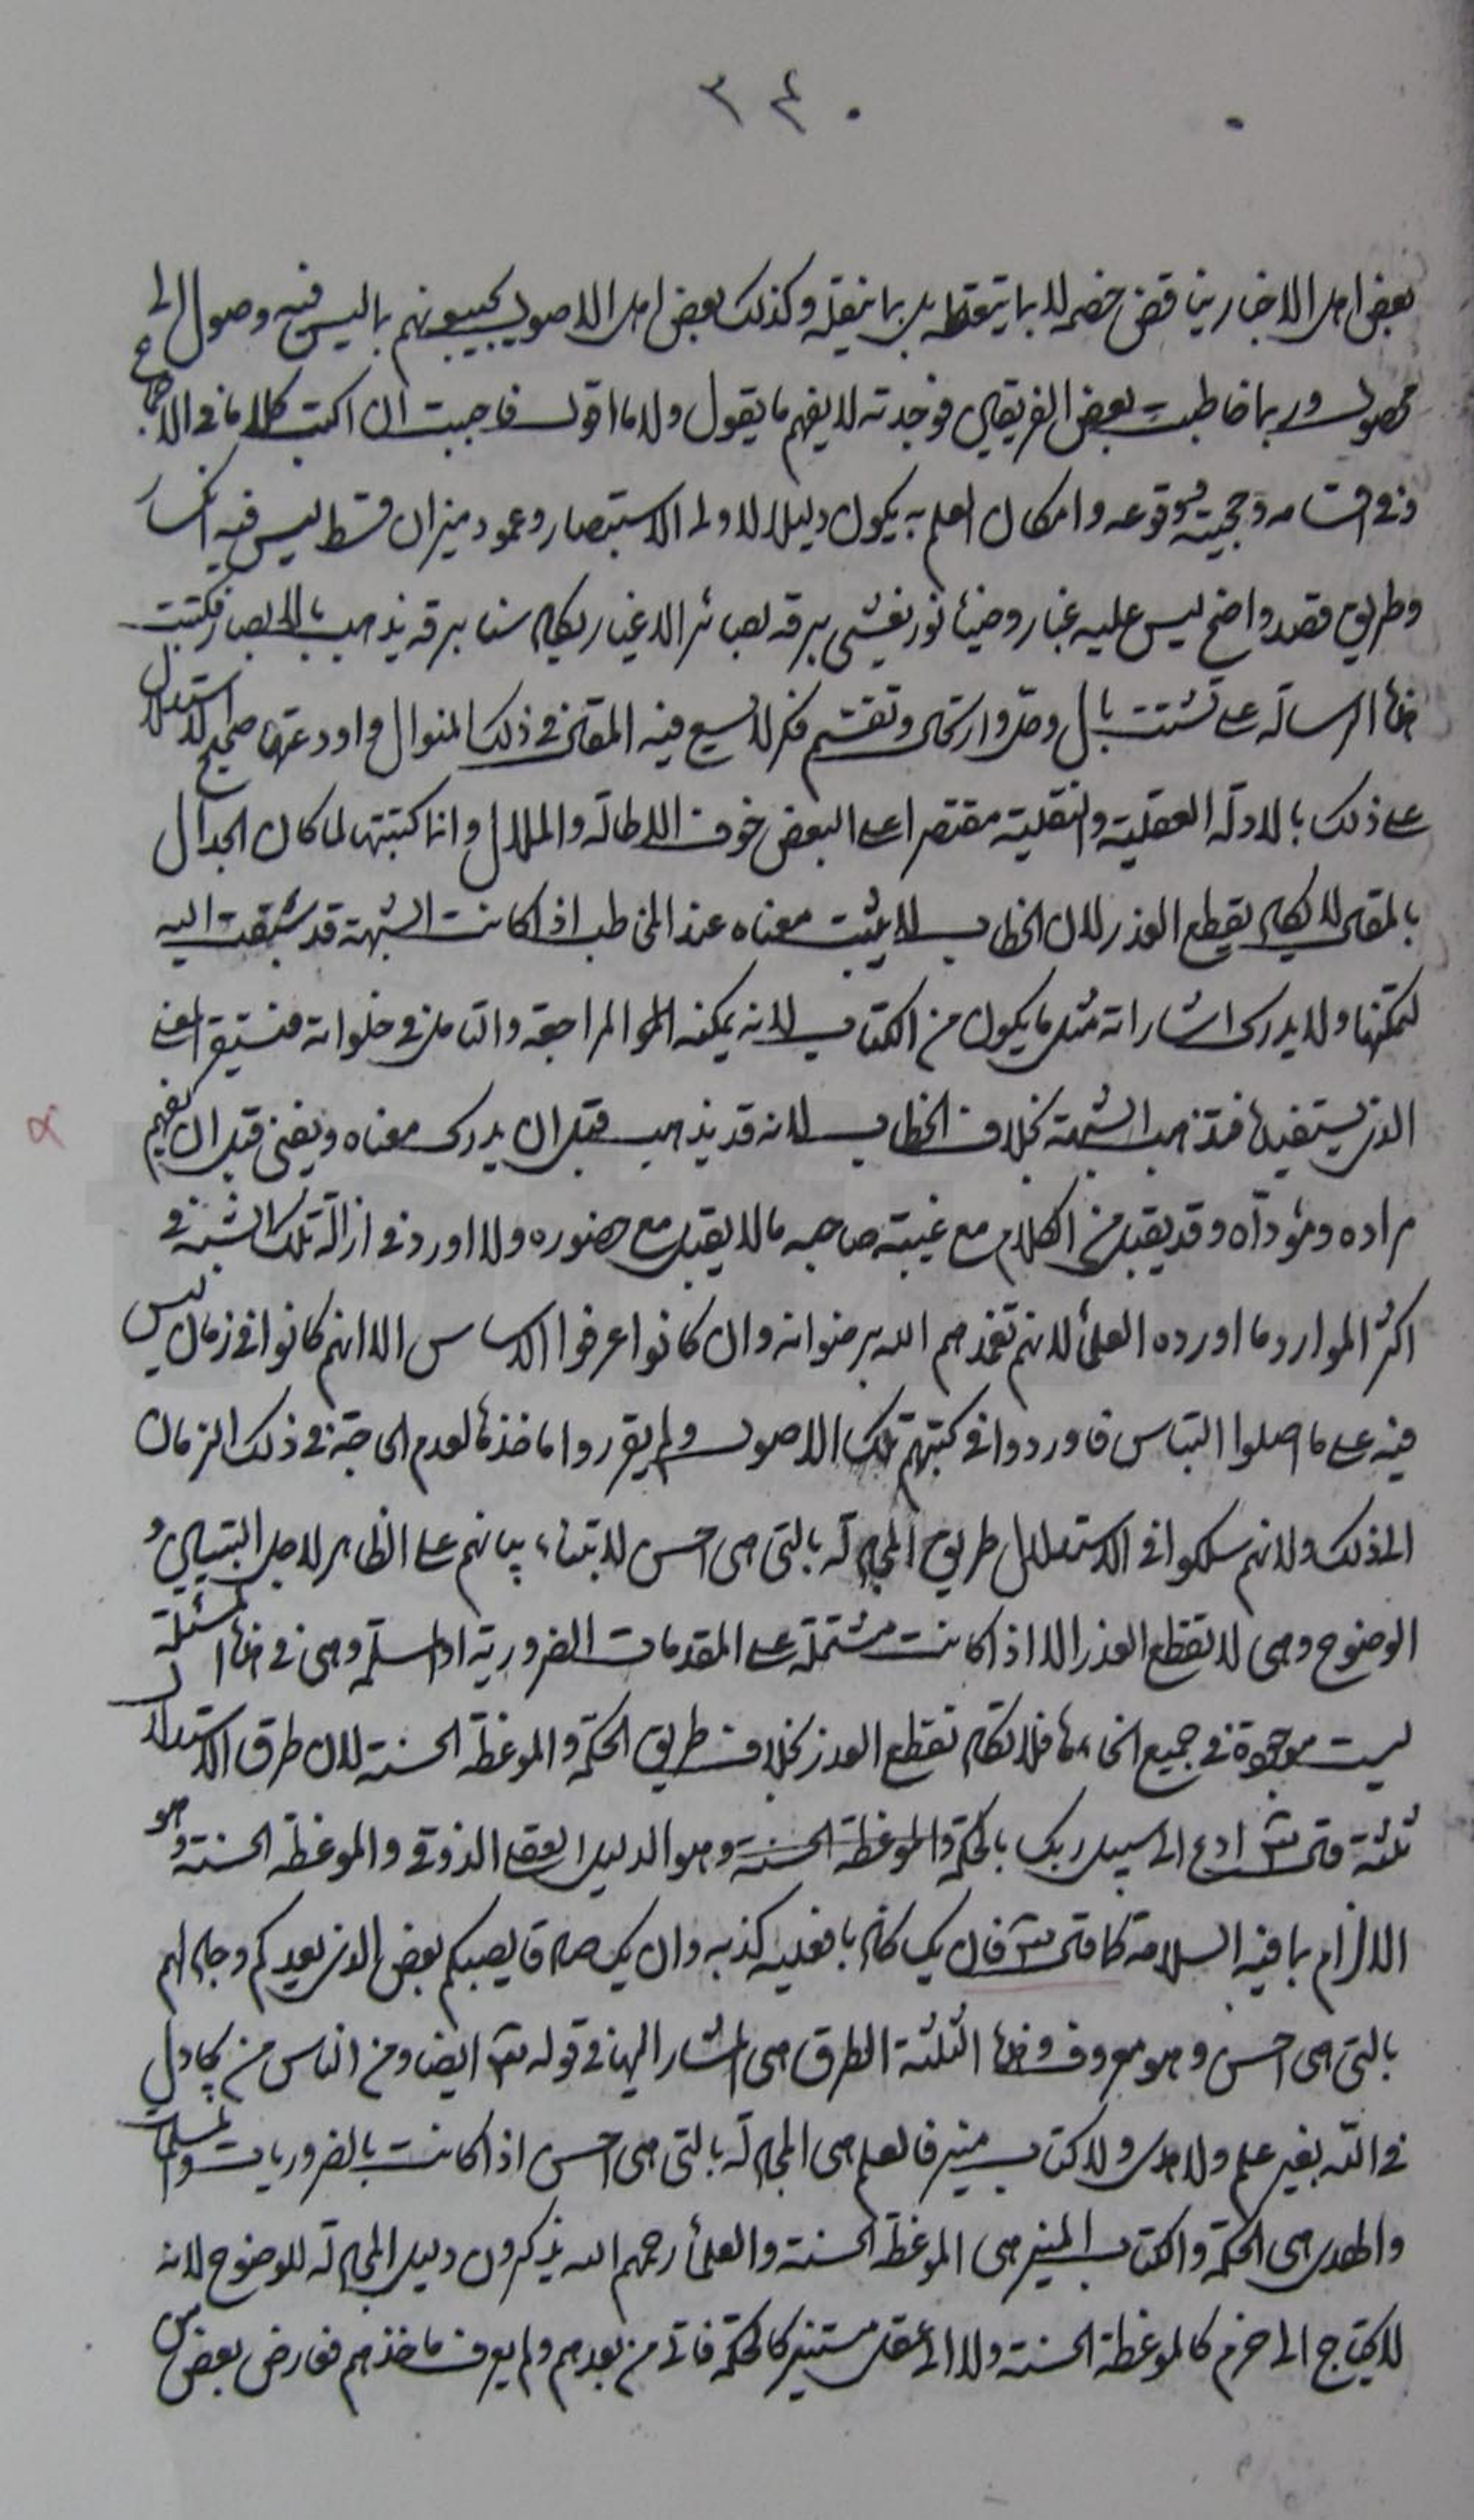 ٣٤٠
بعض اهل الاخبار يناقض خصمه لا بما يتعقله بل بما ينقله وكذلك بعض اهل الاصول يجيبونهم بما ليس فيه وصول الى
محصول وربما خاطبت بعض الفريقين فوجدته لا يفهم ما يقول ولا ما اقول فاحببت ان اكتب كلاما في الاجماع
وفي اقسامه وحجيته ووقوعه وامكان العلم به يكون دليلا لاولى الاستبصار وعمود ميزان قسط ليس فيه انكسار
وطريق قصد واضح ليس عليه غبار وضياء نور يغشى برقه بصائر الاغيار يكاد سنا برقه يذهب بالابصار فكتبت
هذه الرسالة على تشتت بال وحل وارتحال وتقسم فكر لا يسع فيه المقال في ذلك المنوال واودعتها صحيح الاستدلال
على ذلك بالادلة العقلية والنقلية مقتصرا على البعض خوف الاطالة والملال وانما كتبتها لما كان الجدال
بالمقال لا يكاد يقطع العذر لان الخطاب لا يثبت معناه عند المخاطب اذا كانت الشبهة قد سبقت اليه
لتمكنها ولا يدرك اشاراته مثل ما يكون من الكتاب لانه يمكنه المراجعة والتامل في خلواته فيستقر المعنى
الذي يستفيده فتذهب الشبهة بخلاف الخطاب لانه قد يذهب قبل ان يدرك معناه ويفنى قبل ان يفهم
مراده ومؤداه وقد يقبل من الكلام مع غيبة صاحبه ما لا يقبل مع حضوره ولا اورد في ازالة تلك الشبهة في
اكثر الموارد ما اورده العلماء لانهم تغمدهم الله برضوانه وان كانوا عرفوا الاساس الا انهم كانوا في زمان ليس
فيه على ما اصلوا التباس فاوردوا في كتبهم تلك الاصول ولم يقرروا ماخذها لعدم الحاجة في ذلك الزمان
الى ذلك ولانهم سلكوا في الاستدلال طريق المجادلة بالتي هي احسن لابتناء بيانهم على الظاهر لاجل التبيين و
الوضوح وهي لا تقطع العذر الا اذا كانت مشتملة على المقدمات الضرورية او المسلمة وهي في هذه المسئلة
ليست موجودة في جميع انحائها فلا تكاد تقطع العذر بخلاف طريق الحكمة والموعظة الحسنة لان طرق الاستدلال
ثلثة قال تعالى ادع الى سبيل ربك بالحكمة والموعظة الحسنة وهو الدليل العقلي الذوقي والموعظة الحسنة وهو
الالزام بما فيه السلامة كما قال تعالى فان يك كاذبا فعليه كذبه وان يك صادقا يصبكم بعض الذي يعدكم وجادلهم
بالتي هي احسن وهو معروف وهذه الثلثة الطرق هي المشار اليها في قوله تعالى ايضا ومن الناس من يجادل
في الله بغير علم ولا هدى ولا كتاب منير فالعلم هي المجادلة بالتي هي احسن اذا كانت بالضروريات والمسلمات
والهدى هي الحكمة والكتاب المنير هي الموعظة الحسنة والعلماء رحمهم الله يذكرون دليل المجادلة للوضوح لانه
لا يحتاج الى حزم كالموعظة الحسنة ولا الى عقل مستنير كالحكمة فاتى من بعدهم ولم يعرف ماخذهم فعارض بعض من